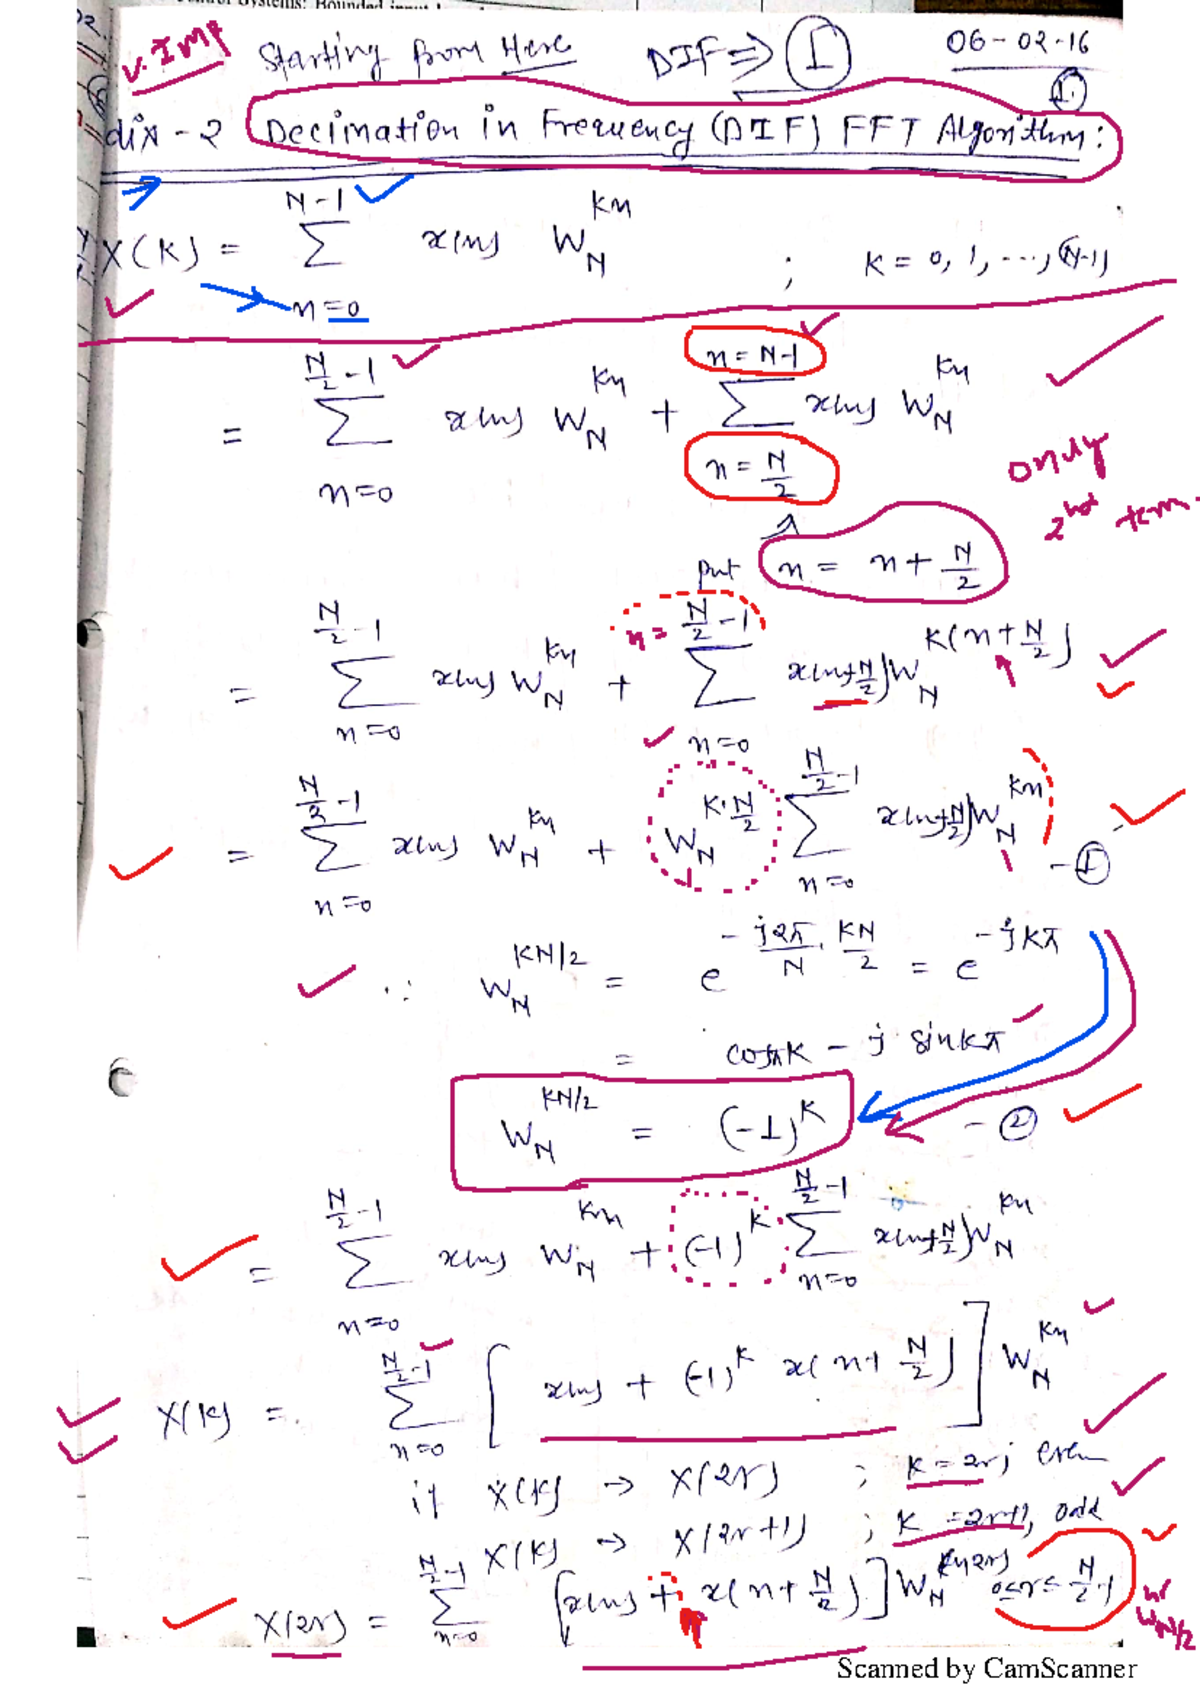 v. Imp Starting from Here DIF ⇒ (I) 06-02-16
(1.)
dix-2 Decimation in Frequency (DIF) FFT Algorithm:
X(K) = Σ_{n=0}^{N-1} x(n) W_N^{Kn} ; K = 0, 1, ..., (N-1)
= Σ_{n=0}^{N/2 -1} x(n) W_N^{Kn} + Σ_{n=N/2}^{n=N-1} x(n) W_N^{Kn}
only
2nd term.
put n = n + N/2
= Σ_{n=0}^{N/2 -1} x(n) W_N^{Kn} + Σ_{n=0}^{n= N/2 -1} x(n+N/2) W_N^{K(n+N/2)}
= Σ_{n=0}^{N/2 -1} x(n) W_N^{Kn} + W_N^{K·N/2} Σ_{n=0}^{N/2 -1} x(n+N/2) W_N^{Kn} - (1)
∵ W_N^{KN/2} = e^{-j2π/N · KN/2} = e^{-jKπ}
= cosπK - j sinKπ
W_N^{KN/2} = (-1)^K - (2)
= Σ_{n=0}^{N/2 -1} x(n) W_N^{Kn} + (-1)^K Σ_{n=0}^{N/2 -1} x(n+N/2) W_N^{Kn}
X(K) = Σ_{n=0}^{N/2 -1} [x(n) + (-1)^K x(n+N/2)] W_N^{Kn}
if X(K) → X(2r) ; K = 2r; even
X(K) → X(2r+1) ; K = 2r+1, odd
X(2r) = Σ_{n=0}^{N/2 -1} [x(n) + x(n+N/2)] W_N 0≤r≤ N/2 -1
W_{N/2}
Scanned by CamScanner